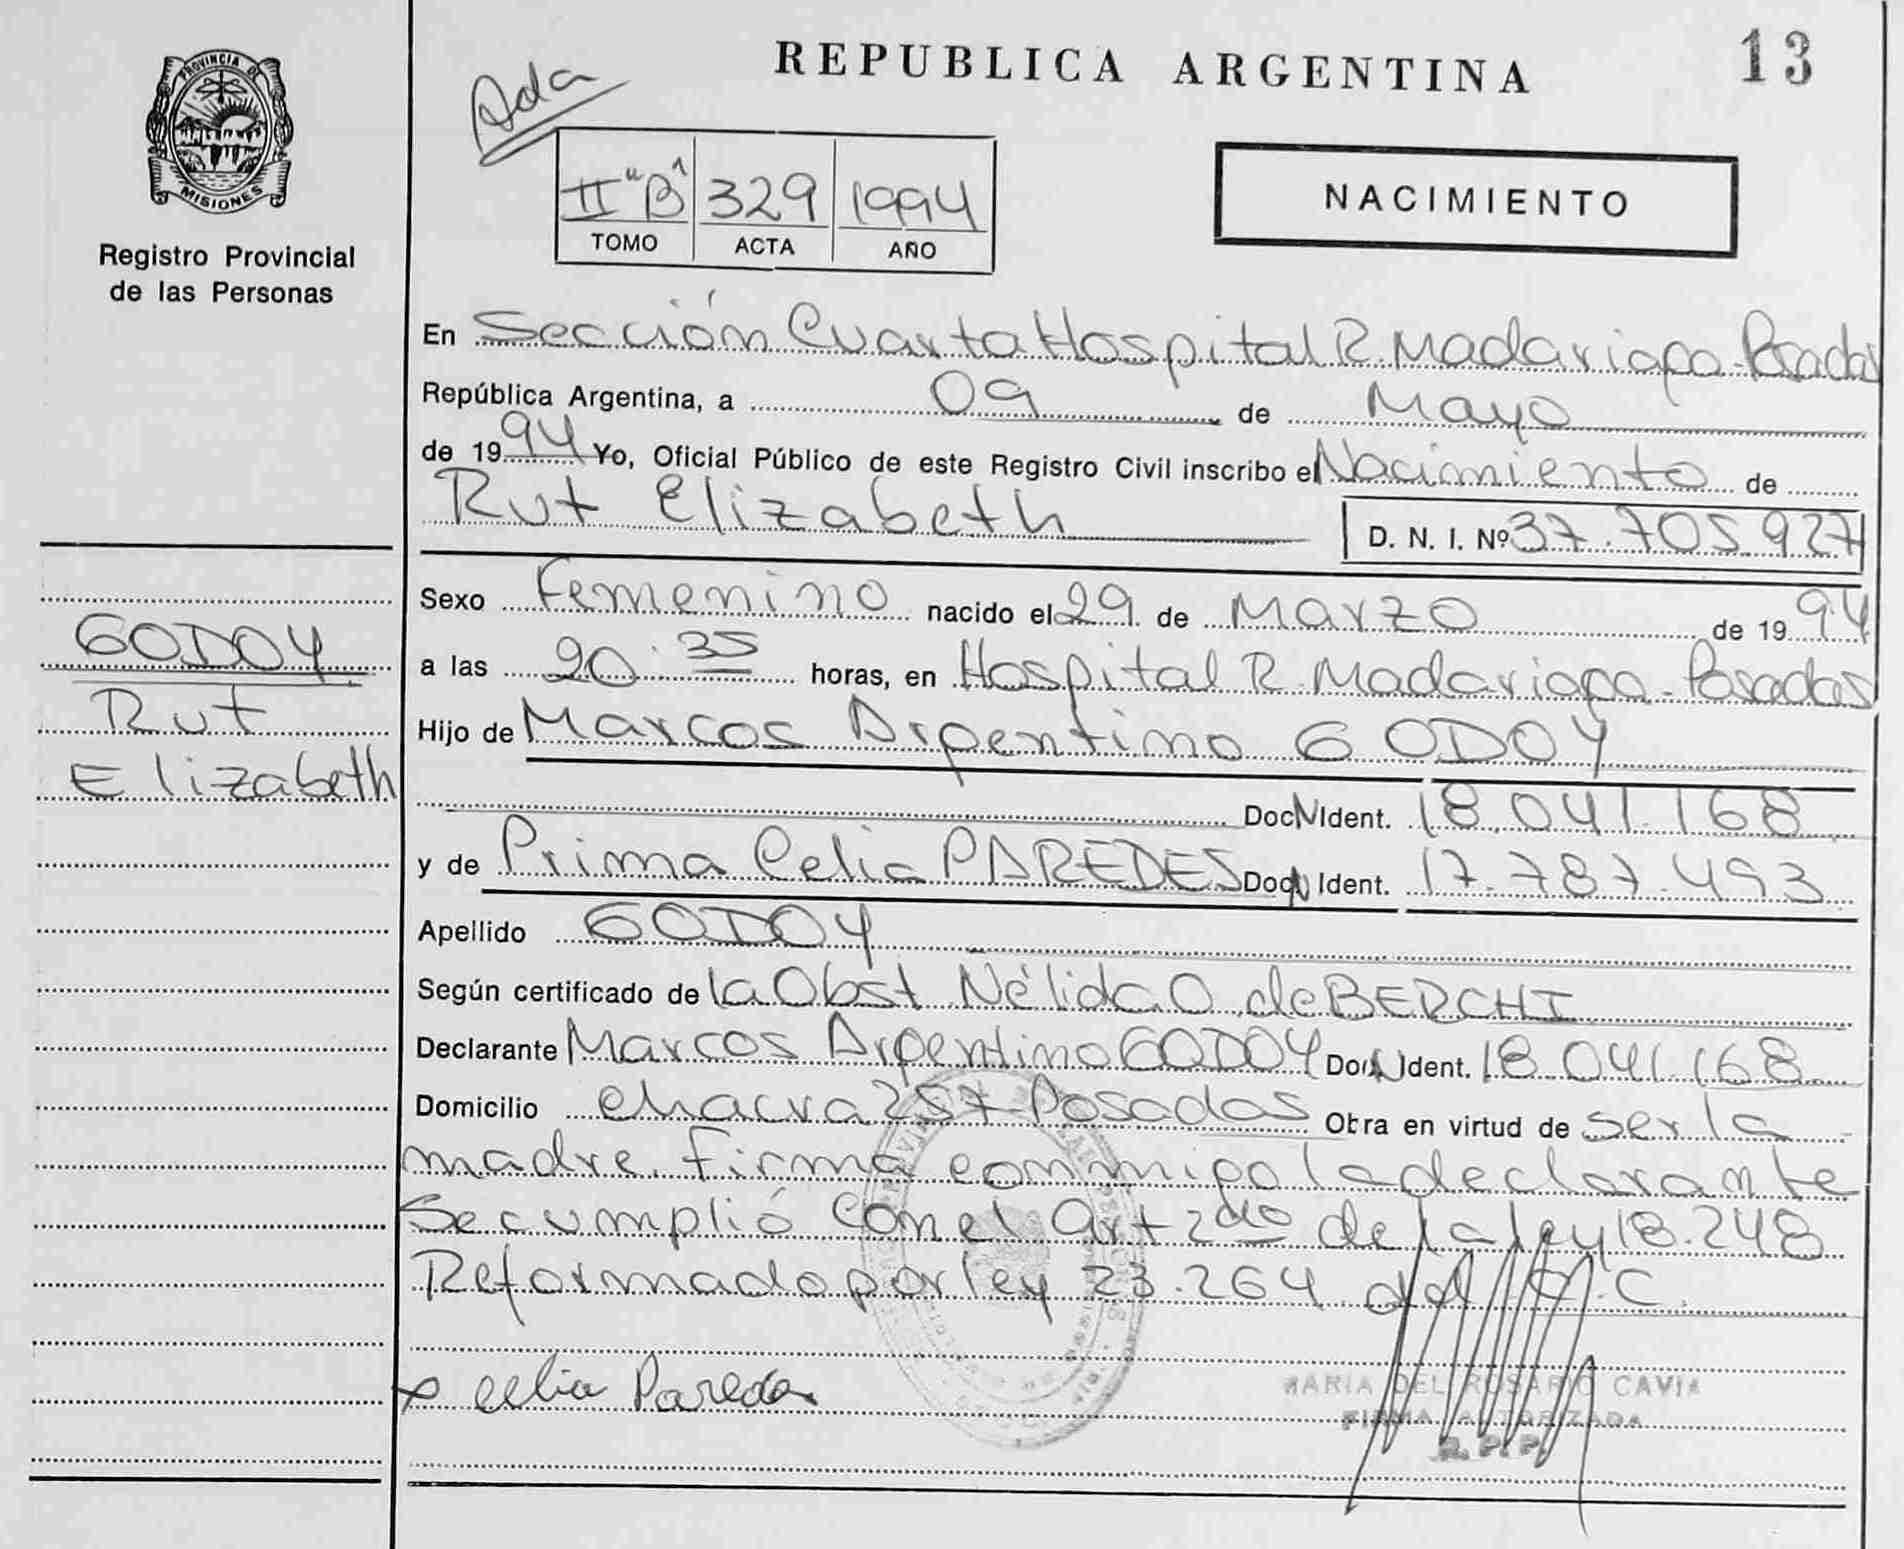 REPUBLICA ARGENTINA
13
PROVINCIA DE
MISIONES
Registro Provincial
de las Personas
Ada
II "B" 329 1994
TOMO ACTA AÑO
NACIMIENTO
En Sección Cuarta Hospital R. Madariaga - Posadas
República Argentina, a 09 de Mayo
de 1994 Yo, Oficial Público de este Registro Civil inscribo el Nacimiento de
Rut Elizabeth D. N. I. Nº 37.705.927
GODOY
Rut
Elizabeth
Sexo Femenino nacido el 29 de Marzo de 1994
a las 20:35 horas, en Hospital R. Madariaga - Posadas
Hijo de Marcos Argentino GODOY
Doc N Ident. 18.041.168
y de Prima Celia PAREDES Doc N Ident. 17.787.493
Apellido GODOY
Según certificado de la Obst Nélida O. de BERCHI
Declarante Marcos Argentino GODOY Doc N Ident. 18.041.168
Domicilio chacra 257 Posadas Obra en virtud de ser la
madre. firma conmigo la declarante
Se cumplió con el Art 2do de la ley 18.248
Reformado por ley 23.264 del C.C.
x Celia Paredes
MARIA DEL ROSARIO CAVIA
FIRMA AUTORIZADA
R. P. P.